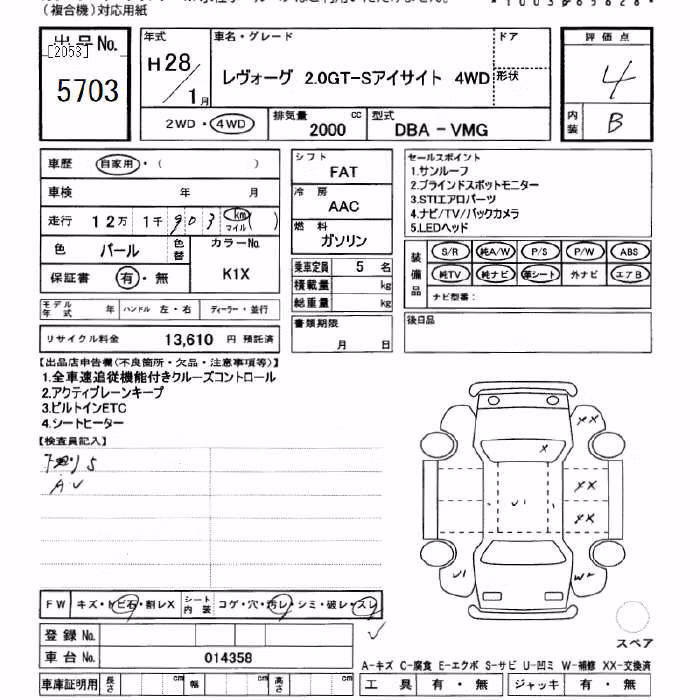 （複合機）対応用紙
出品No.
[2053]
5703
年式
H28/1月
車名・グレード
レヴォーグ 2.0GT-Sアイサイト 4WD
ドア
形状
評価点
4
内装
B
2WD・4WD
排気量
2000
cc
型式
DBA-VMG
車歴
自家用・(　　)
車検
年　月
走行
12万 1千 903 km マイル ( )
色
パール
色替
カラーNo.
K1X
保証書
有・無
シフト
FAT
冷房
AAC
燃料
ガソリン
乗車定員
5 名
積載量
kg
総重量
kg
書類期限
月　日
セールスポイント
1.サンルーフ
2.ブラインドスポットモニター
3.STIエアロパーツ
4.ナビ/TV//バックカメラ
5.LEDヘッド
装備品
S/R 純A/W P/S P/W ABS
純TV 純ナビ 革シート 外ナビ エアB
ナビ型番：
後日品
モデル年式
年
ハンドル 左・右
ディーラー・並行
リサイクル料金
13,610 円 預託済
【出品店申告欄(不良箇所・欠品・注意事項等)】
1.全車速追従機能付きクルーズコントロール
2.アクティブレーンキープ
3.ビルトインETC
4.シートヒーター
【検査員記入】
AU
XX
X
XX
U1
XX
U1
W2
FW
キズ・トビ石・割レX
シート内装
コゲ・穴・汚レ・シミ・破レ・スレ
登録No.
車台No.
014358
スペア
A-キズ C-腐食 E-エクボ S-サビ U-凹ミ W-補修 XX-交換済
車庫証明用
長さ
cm
幅
cm
高さ
cm
工具
有・無
ジャッキ
有・無